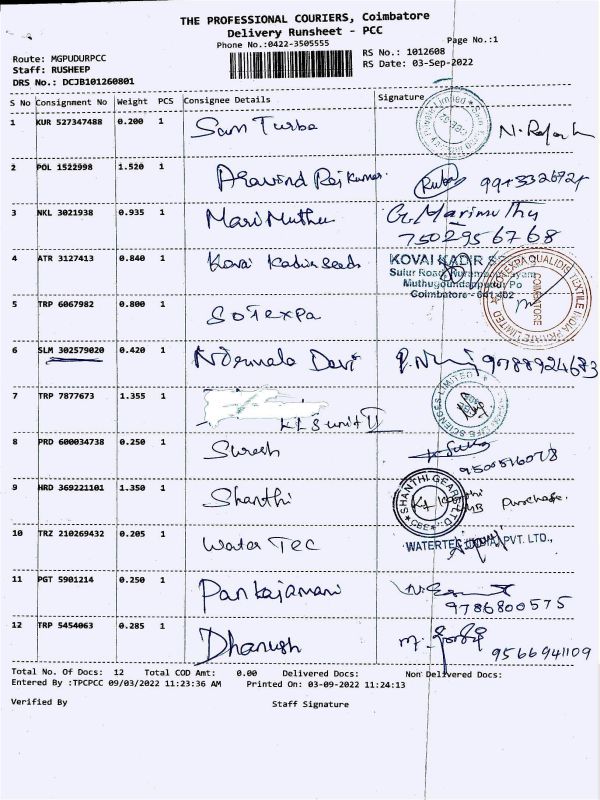 THE PROFESSIONAL COURIERS, Coimbatore
Delivery Runsheet - PCC
Phone No.:0422-3505555
Page No.:1
Route: MGPUDURPCC
Staff: RUSHEEP
DRS No.: DCJB101260801
RS No.: 1012608
RS Date: 03-Sep-2022
S No Consignment No Weight PCS Consignee Details Signature
1 KUR 527347488 0.200 1 Sam Turbo
2 POL 1522998 1.520 1 Aravind Rajkumar
3 NKL 3021938 0.935 1 MariMuthu G. Marimuthu
7502956768
4 ATR 3127413 0.840 1 Kovai Kadir Seeds KOVAI KADIR
Sulur Road,
Muthugoundapudur Po
Coimbatore - 641 402
5 TRP 6067982 0.800 1 SOTexpa
TEXTILE INDIA PRIVATE LIMITED
COIMBATORE
6 SLM 302579020 0.420 1 Nirmala Devi 9788924683
7 TRP 7877673 1.355 1 KLS unit II
8 PRD 600034738 0.250 1 Suresh
9 HRD 369221101 1.350 1 Shanthi SHANTHI GEARS LTD CBE Purchase.
10 TRZ 210269432 0.205 1 Water Tec WATERTEC INDIA PVT. LTD.,
11 PGT 5901214 0.250 1 Pankajamani
9786800575
12 TRP 5454063 0.285 1 Dhanush 9566941109
Total No. Of Docs: 12 Total COD Amt: 0.00 Delivered Docs: Non Delivered Docs:
Entered By :TPCPCC 09/03/2022 11:23:36 AM Printed On: 03-09-2022 11:24:13
Verified By Staff Signature